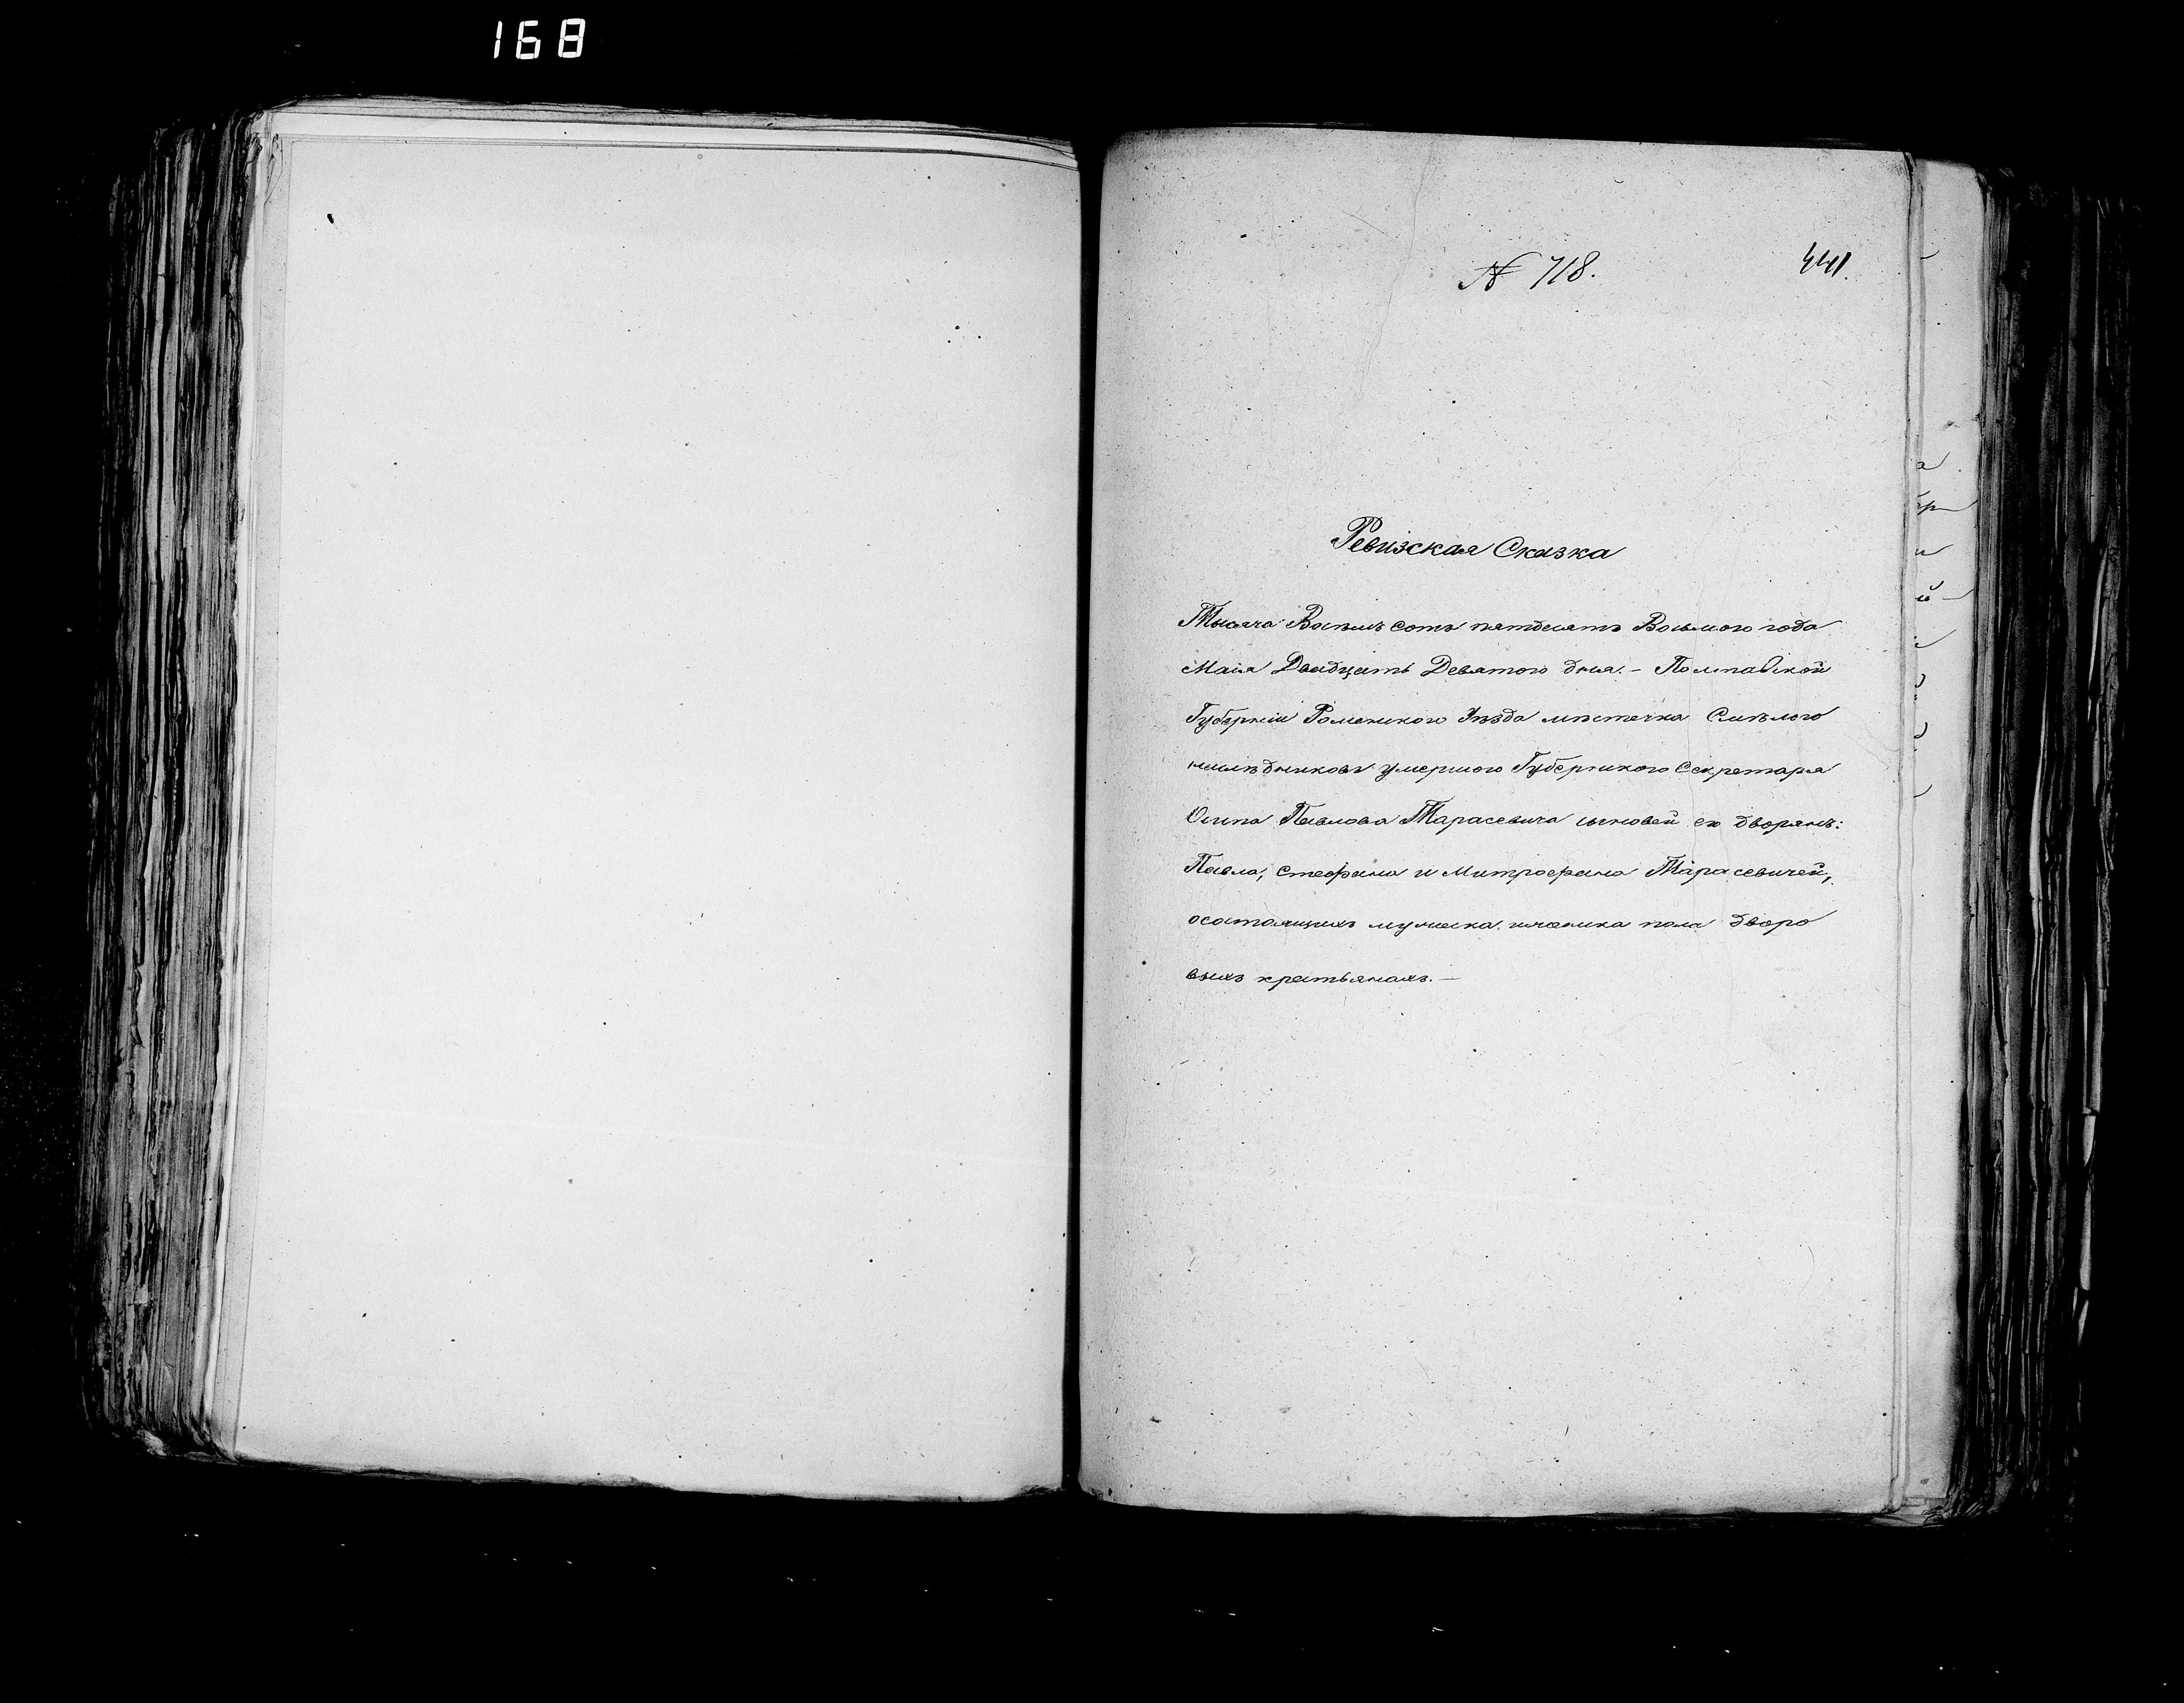 168
№ 718.
441.
Ревизская Сказка
Тысяча Восемь сотъ пятдесятъ Восьмого года
Маія Двадцать Девятого дня. – Полтавской
Губерніи Роменского Уѣзда мѣстечка Смѣлого
наслѣдниковъ умершого Губернского Секретаря
Осипа Павлова Тарасевича сыновей его дворянъ:
Павла, Стефана и Митрофана Тарасевичей,
осостоящихъ мужеска иженска пола дворо
выхъ крестьянахъ. —